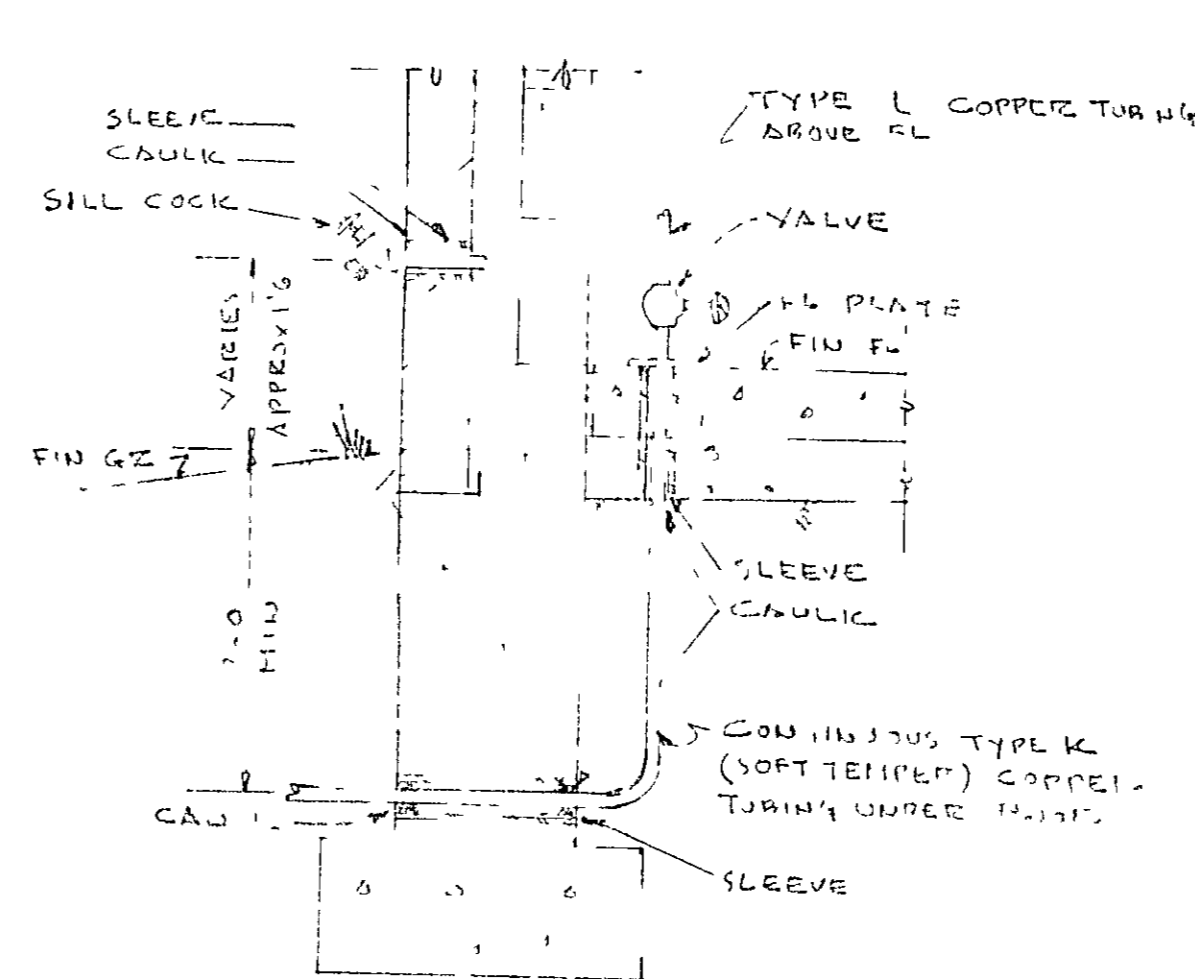 SLEEVE
CAULK
SILL COCK
TYPE L COPPER TUBING
ABOVE FL
VALVE
FL PLATE
FIN FL
VARIES
APPROX 1'6
FIN GR
MIN
SLEEVE
CAULK
CONTINUOUS TYPE K
(SOFT TEMPER) COPPER
TUBING UNDER
SLEEVE